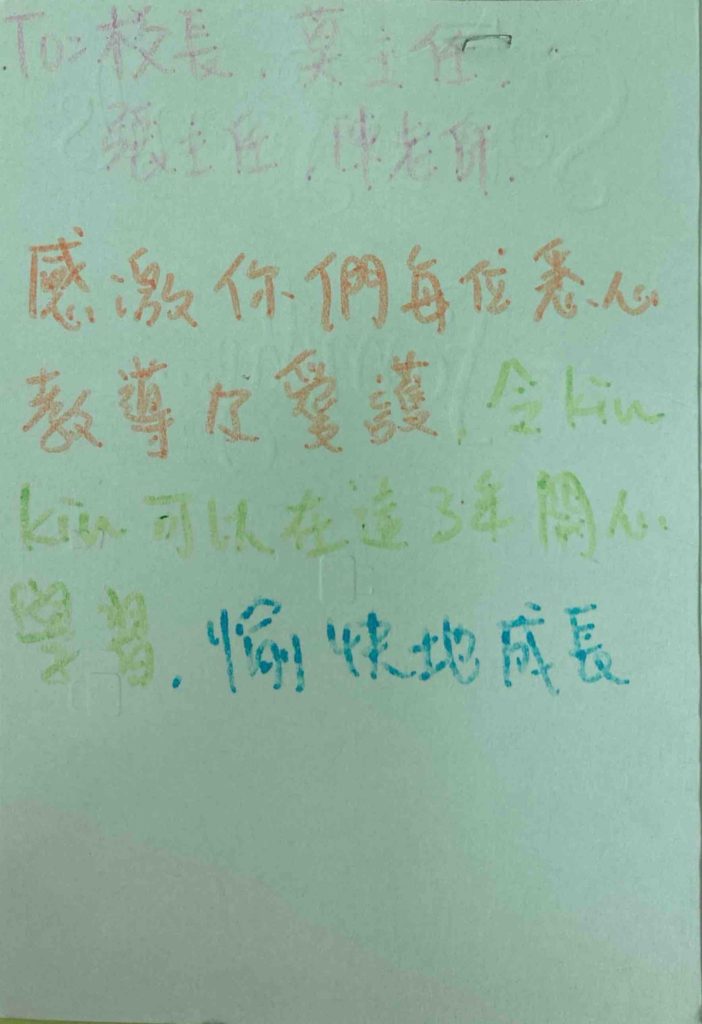 To: 校長、莫主任、
張主任、陳老師、
感激你們每位悉心
教導及愛護，令kiu
kiu可以在這3年開心
學習，愉快地成長